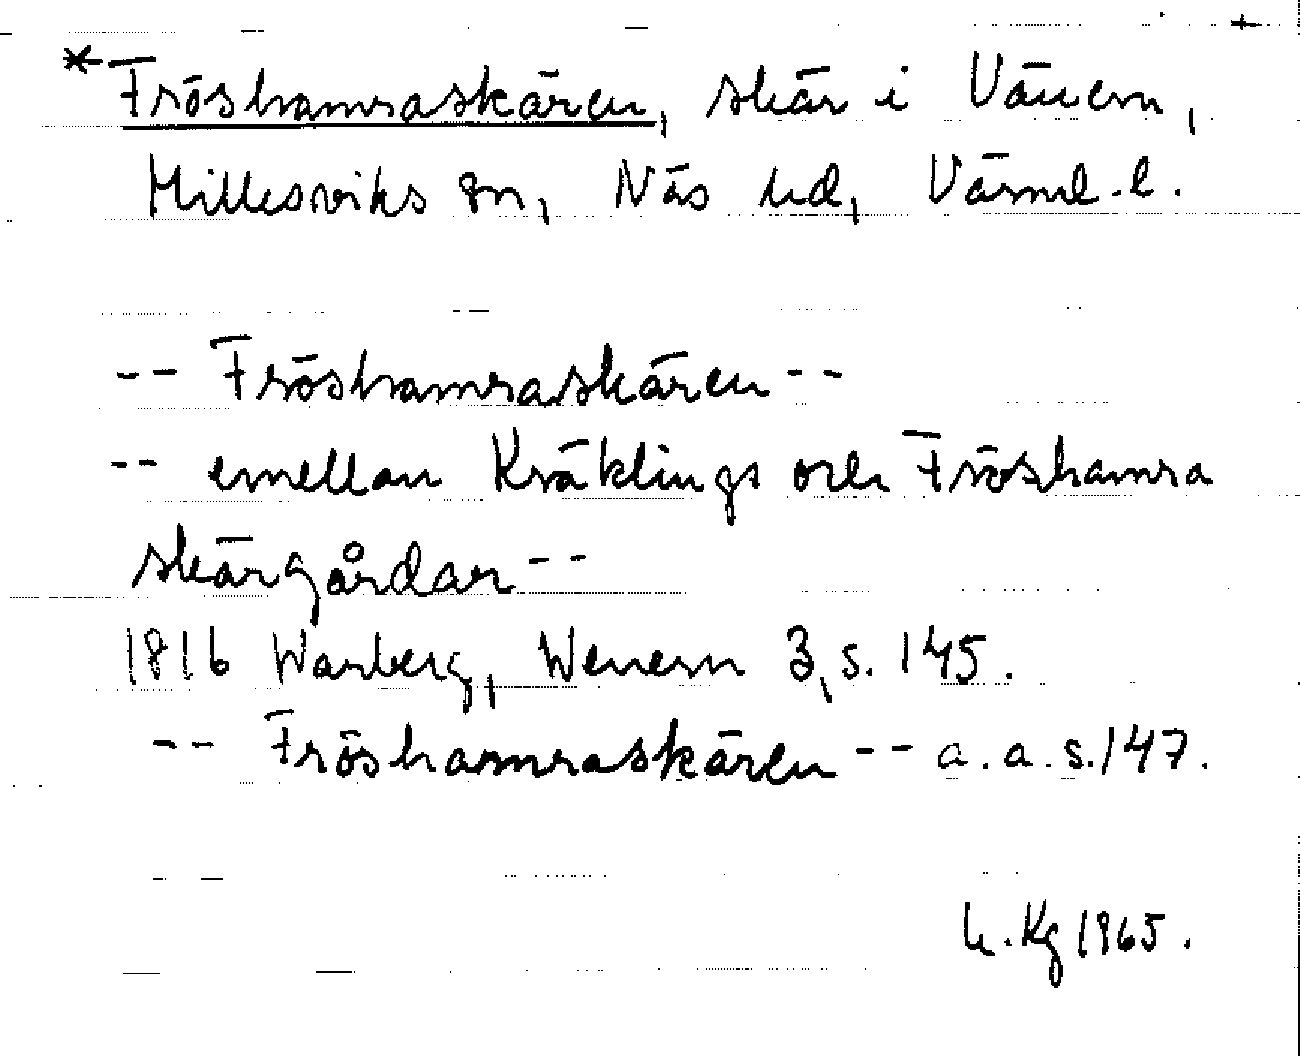 *Fröshamraskären, skär i Vänern,
Millesviks sn, Näs hd, Värml. l.
-- Fröshamraskären --
-- emellan Kräklings och Fröshamra
skärgårdar --
1816 Warberg, Wenern 3, s. 145.
-- Fröshamraskären -- a.a.s. 147.
h. Kg 1965.